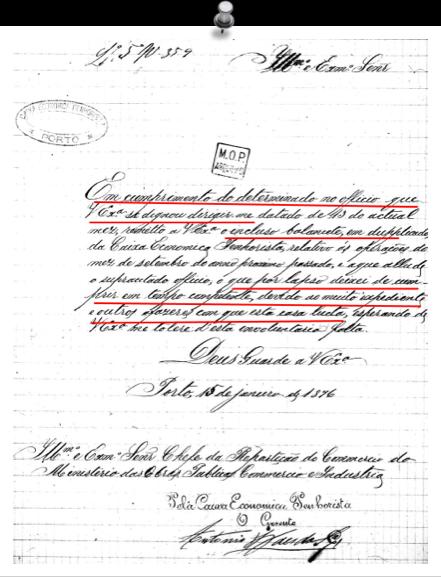 Lº 5º Nº 359
Illmº e Exmº Senr
CAIXA ECONOMICA PENHORISTA
PORTO
M.O.P.
ARCHIVO
Em cumprimento do determinado no officio que
V Exª se dignou dirigir-me datado de 13 do actual
mez, remetto a V Exª o incluso balancete, em duplicado,
da Caixa Economica Penhorista, relativo ás operações do
mez de setembro do anno proximo passado, a que allude
o supracitado officio, o que por lapso deixei de cum-
prir em tempo competente, devido ao muito expediente
e outros afazeres com que esta casa lucta, esperando de
V Exª me releve d'esta involuntaria falta.
Deus Guarde a V Exª
Porto, 15 de janeiro de 1896
Illmº e Exmº Senr Chefe da Repartição do Commercio do
Ministerio das Obras Publicas Commercio e Industria
Pela Caixa Economica Penhorista
O Gerente
Antonio